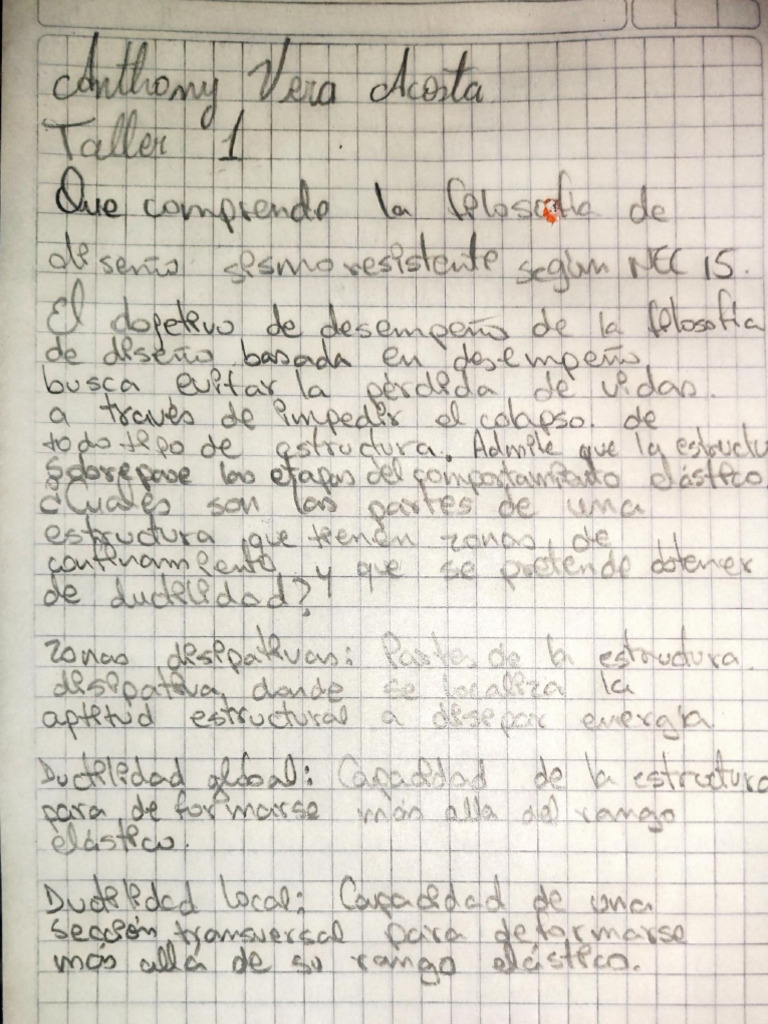 Anthony Vera Acosta
Taller 1
Que comprende la filosofia de
diseño sismo resistente según NEC 15.
El objetivo de desempeño de la filosofia
de diseño basada en desempeño
busca evitar la pérdida de vidas.
a través de impedir el colapso. de
todo tipo de estructura. Admite que la estructu
sobrepase las etapas del comportamiento elástico
Cuales son las partes de una
estructura que tienen zonas de
confinamiento y que se pretende obtener
de ductilidad?
Zonas disipativas: Parte de la estructura
disipativa, donde se localiza la
aptitud estructural a disepar energía
Ductilidad global: Capacidad de la estructura
para deformarse más alla del rango
elástico.
Ductilidad Local: Capacidad de una
sección transversal para deformarse
más allá de su rango elástico.